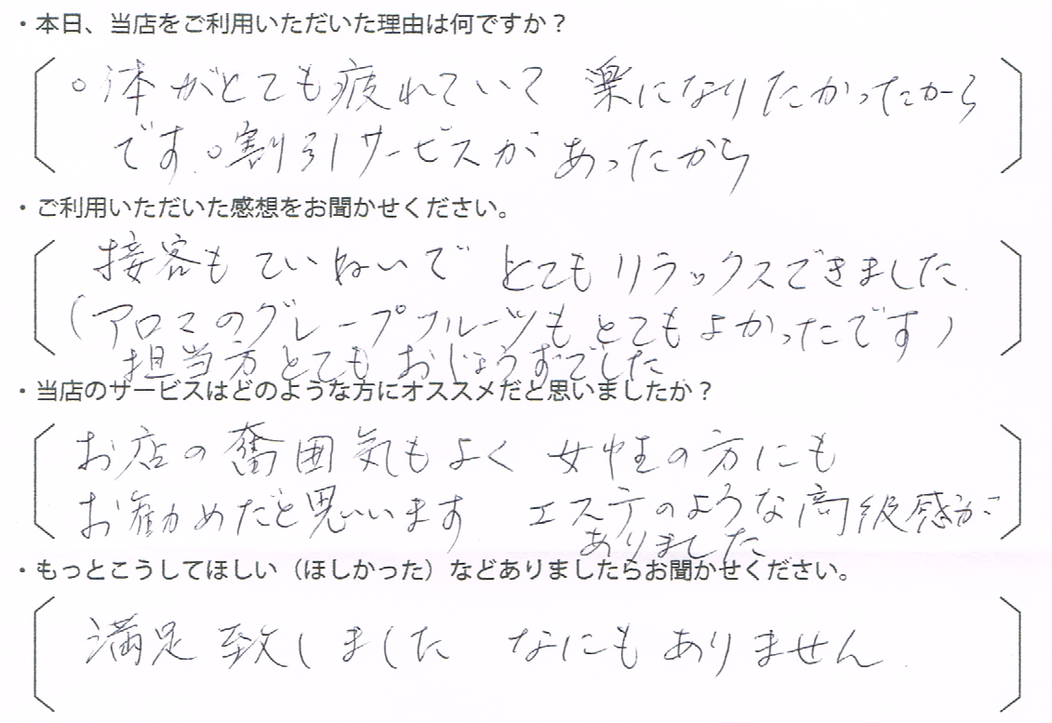 ・本日、当店をご利用いただいた理由は何ですか？
○体がとても疲れていて 楽になりたかったから
です。○割引サービスがあったから
・ご利用いただいた感想をお聞かせください。
接客もていねいで とてもリラックスできました。
（アロマのグレープフルーツもとてもよかったです）
担当方とてもおじょうずでした
・当店のサービスはどのような方にオススメだと思いましたか？
お店の雰囲気もよく 女性の方にも
お勧めだと思います エステのような高級感が
ありました
・もっとこうしてほしい（ほしかった）などありましたらお聞かせください。
満足致しました なにもありません.